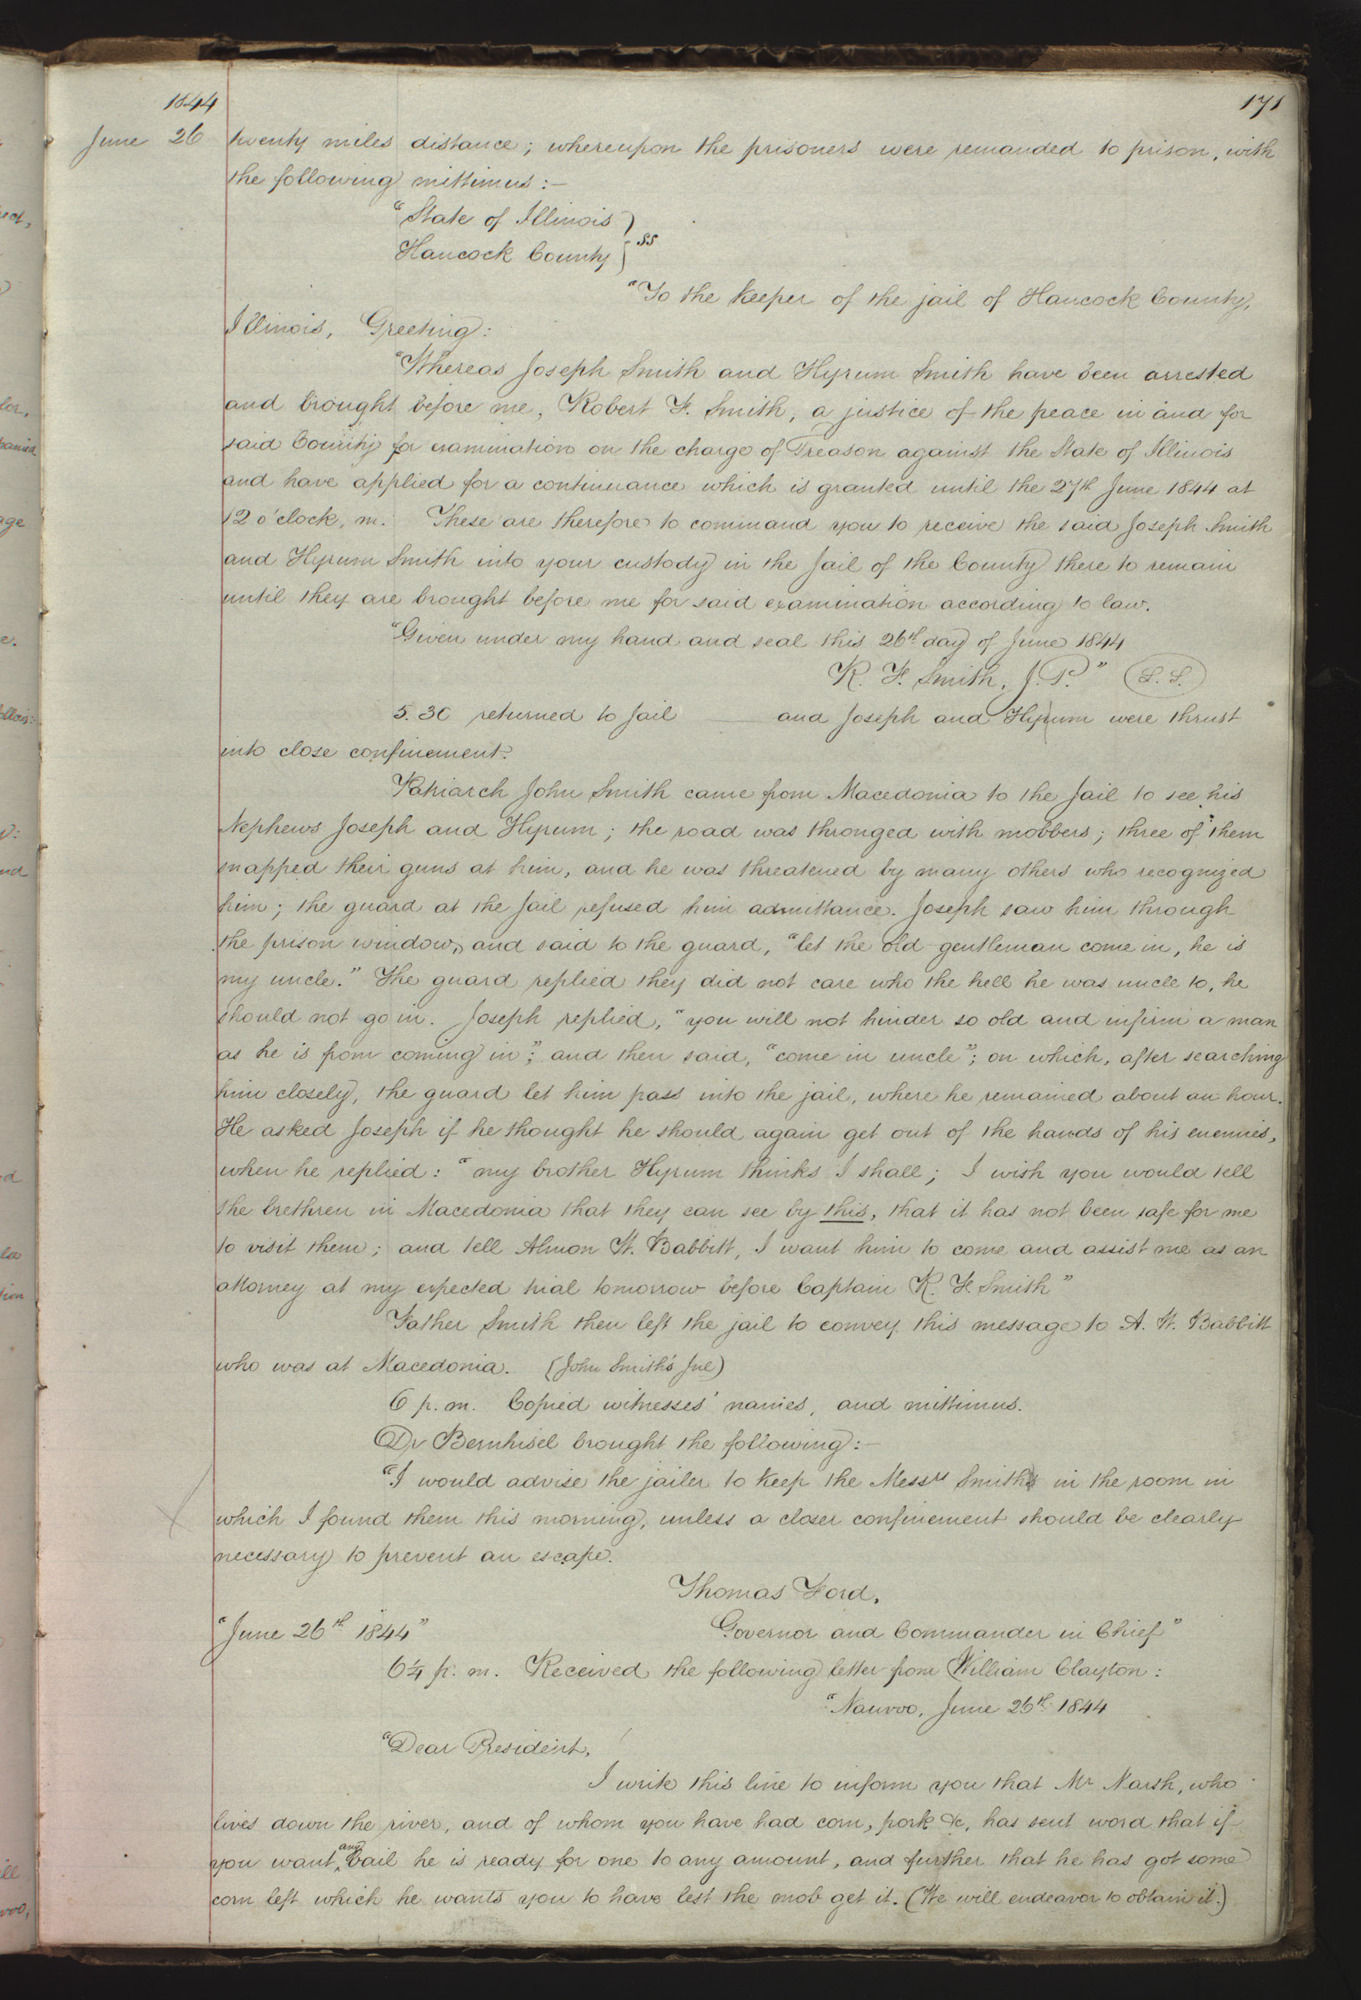 1844
171
June 26 twenty miles distance; whereupon the prisoners were remanded to prison, with
the following mittimus:—
"State of Illinois }
Hancock County } ss
"To the Keeper of the jail of Hancock County,
Illinois, Greeting:
"Whereas Joseph Smith and Hyrum Smith have been arrested
and brought before me, Robert F. Smith, a justice of the peace in and for
said County for examination on the charge of Treason against the State of Illinois
and have applied for a continuance which is granted until the 27th June 1844 at
12 o'clock, m. These are therefore to command you to receive the said Joseph Smith
and Hyrum Smith into your custody in the Jail of the County there to remain
until they are brought before me for said examination according to law.
"Given under my hand and seal this 26th day of June 1844
R. F. Smith, J. P." (L. S.)
5.30 returned to Jail and Joseph and Hyrum were thrust
into close confinement.
Patriarch John Smith came from Macedonia to the Jail to see his
Nephews Joseph and Hyrum; the road was thronged with mobbers; three of them
snapped their guns at him, and he was threatened by many others who recognized
him; the guard at the Jail refused him admittance. Joseph saw him through
the prison window, and said to the guard, "let the old gentleman come in, he is
my uncle." The guard replied they did not care who the hell he was uncle to, he
should not go in. Joseph replied, "you will not hinder so old and infirm a man
as he is from coming in"; and then said, "come in uncle"; on which, after searching
him closely, the guard let him pass into the jail, where he remained about an hour.
He asked Joseph if he thought he should again get out of the hands of his enemies,
when he replied: "my brother Hyrum thinks I shall; I wish you would tell
the brethren in Macedonia that they can see by this, that it has not been safe for me
to visit them; and tell Almon W. Babbitt, I want him to come and assist me as an
attorney at my expected trial tomorrow before Captain R. F. Smith"
Father Smith then left the jail to convey this message to A. W. Babbitt
who was at Macedonia. (John Smith's Jnl)
6 p. m. Copied witnesses' names, and mittimus.
Dr Bernhisel brought the following:—
"I would advise the jailer to keep the Messrs Smiths in the room in
which I found them this morning, unless a closer confinement should be clearly
necessary to prevent an escape.
Thomas Ford,
"June 26th 1844" Governor and Commander in Chief"
6¼ p. m. Received the following letter from William Clayton:
"Nauvoo, June 26th 1844
"Dear President,
I write this line to inform you that Mr Marsh, who
lives down the river, and of whom you have had corn, pork &c, has sent word that if
you want any bail he is ready for one to any amount, and further that he has got some
corn left which he wants you to have lest the mob get it. (We will endeavor to obtain it.)